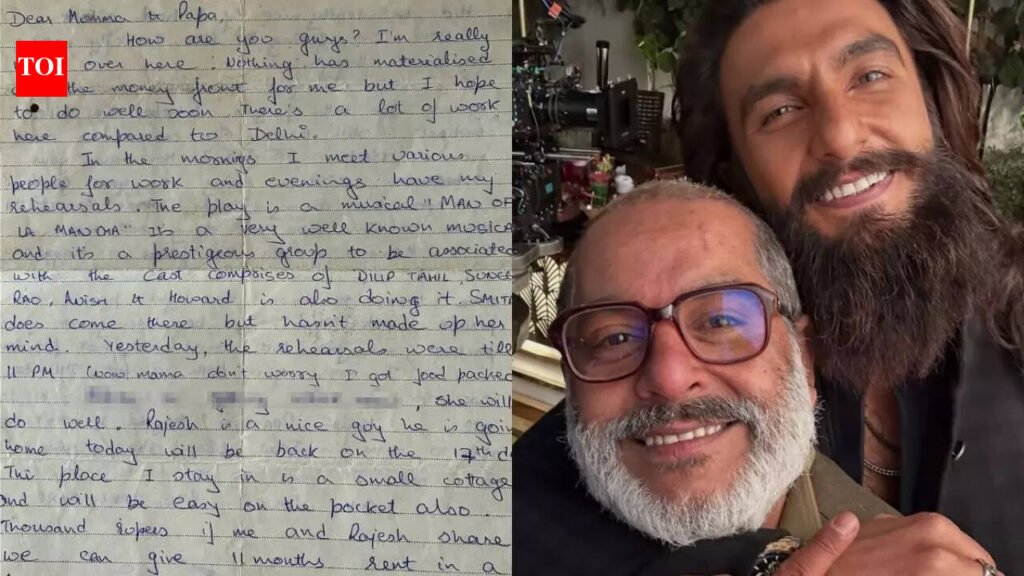 Dear Momma & Papa,
How are you guys? I'm really
TOI
over here. Nothing has materialised
the money front for me but I hope
to do well soon There's a lot of work
here compared to Delhi.
In the mornings I meet various
people for work and evenings have my
rehearsals. The play is a musical "MAN OF
LA MANCHA" Its a very well known musica
and its a prestigeous group to be associate
with the cast comprises of DILIP TAHIL, SUNEE
RAO, Avish & Howard is also doing it. SMIT
does come there but hasn't made up her
mind. Yesterday, the rehearsals were till
11 PM (wow mama don't worry I got food packed
, she will
do well. Rajesh is a nice guy he is goin
home today will be back on the 17th d
The place I stay in is a small cottage
and will be easy on the pocket also.
Thousand rupees if me and Rajesh share
we can give 11 months rent in a